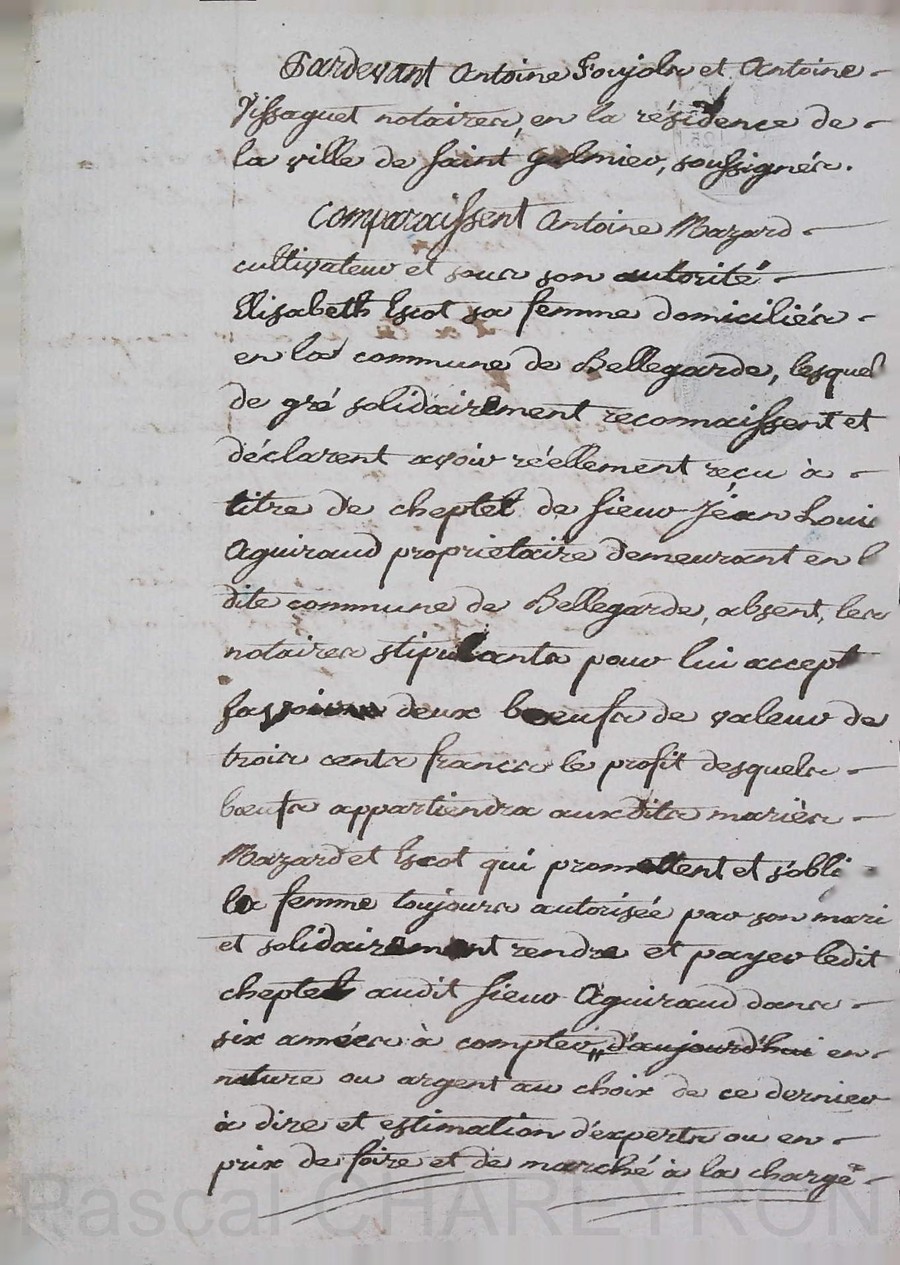 Pardevant Antoine Soujols et Antoine
Vissaguet notaires, en la résidence de
la ville de Saint galmier, soussignés.
Comparaissent Antoine Mazard
cultivateur et sous son autorité
Elisabeth Escot sa femme domiciliés
en la commune de Bellegarde, lesquel
de gré solidairement reconnaissent et
déclarent avoir réellement reçu à
titre de cheptel de sieur Jéan Loui
Aguiraud propriétaire demeurant en l
dite commune de Bellegarde, absent, les
notaires stipulants pour lui accept
deux bœufs de valeur de
trois cents francs le profit desquels
bœufs appartiendra auxdits mariés
Mazard et Escot qui promettent et s'obli
la femme toujours autorisée par son mari
et solidairement rendre et payer ledit
cheptel audit sieur Aguiraud dans
six années à compter d'aujourd'hui en
nature ou argent au choix de ce dernier
à dire et estimation d'experts ou en
prix de foire et de marché à la charge
Pascal CHAREYRON